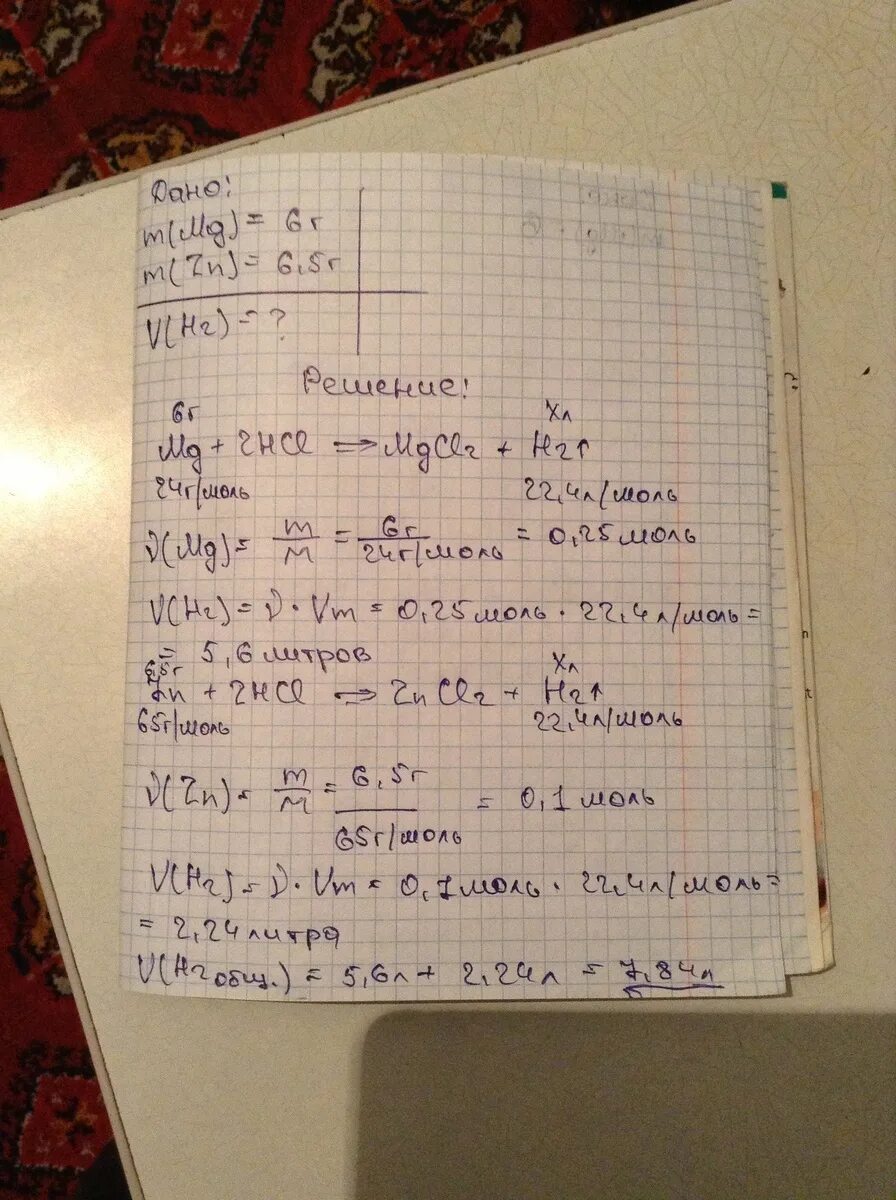 Дано:
m(Mg) = 6г
m(Zn) = 6,5г
V(H₂) = ?
Решение:
6г Xл
Mg + 2HCl ⇒ MgCl₂ + H₂↑
24г/моль 22,4л/моль
ν(Mg) = m/M = 6г/24г/моль = 0,25 моль
V(H₂) = ν · Vm = 0,25 моль · 22,4л/моль =
= 5,6 литров
6,5г Xл
Zn + 2HCl ⇒ ZnCl₂ + H₂↑
65г/моль 22,4л/моль
ν(Zn) = m/M = 6,5г/65г/моль = 0,1 моль
V(H₂) = ν · Vm = 0,1 моль · 22,4л/моль =
= 2,24 литра
V(H₂ общ.) = 5,6л + 2,24л = 7,84л